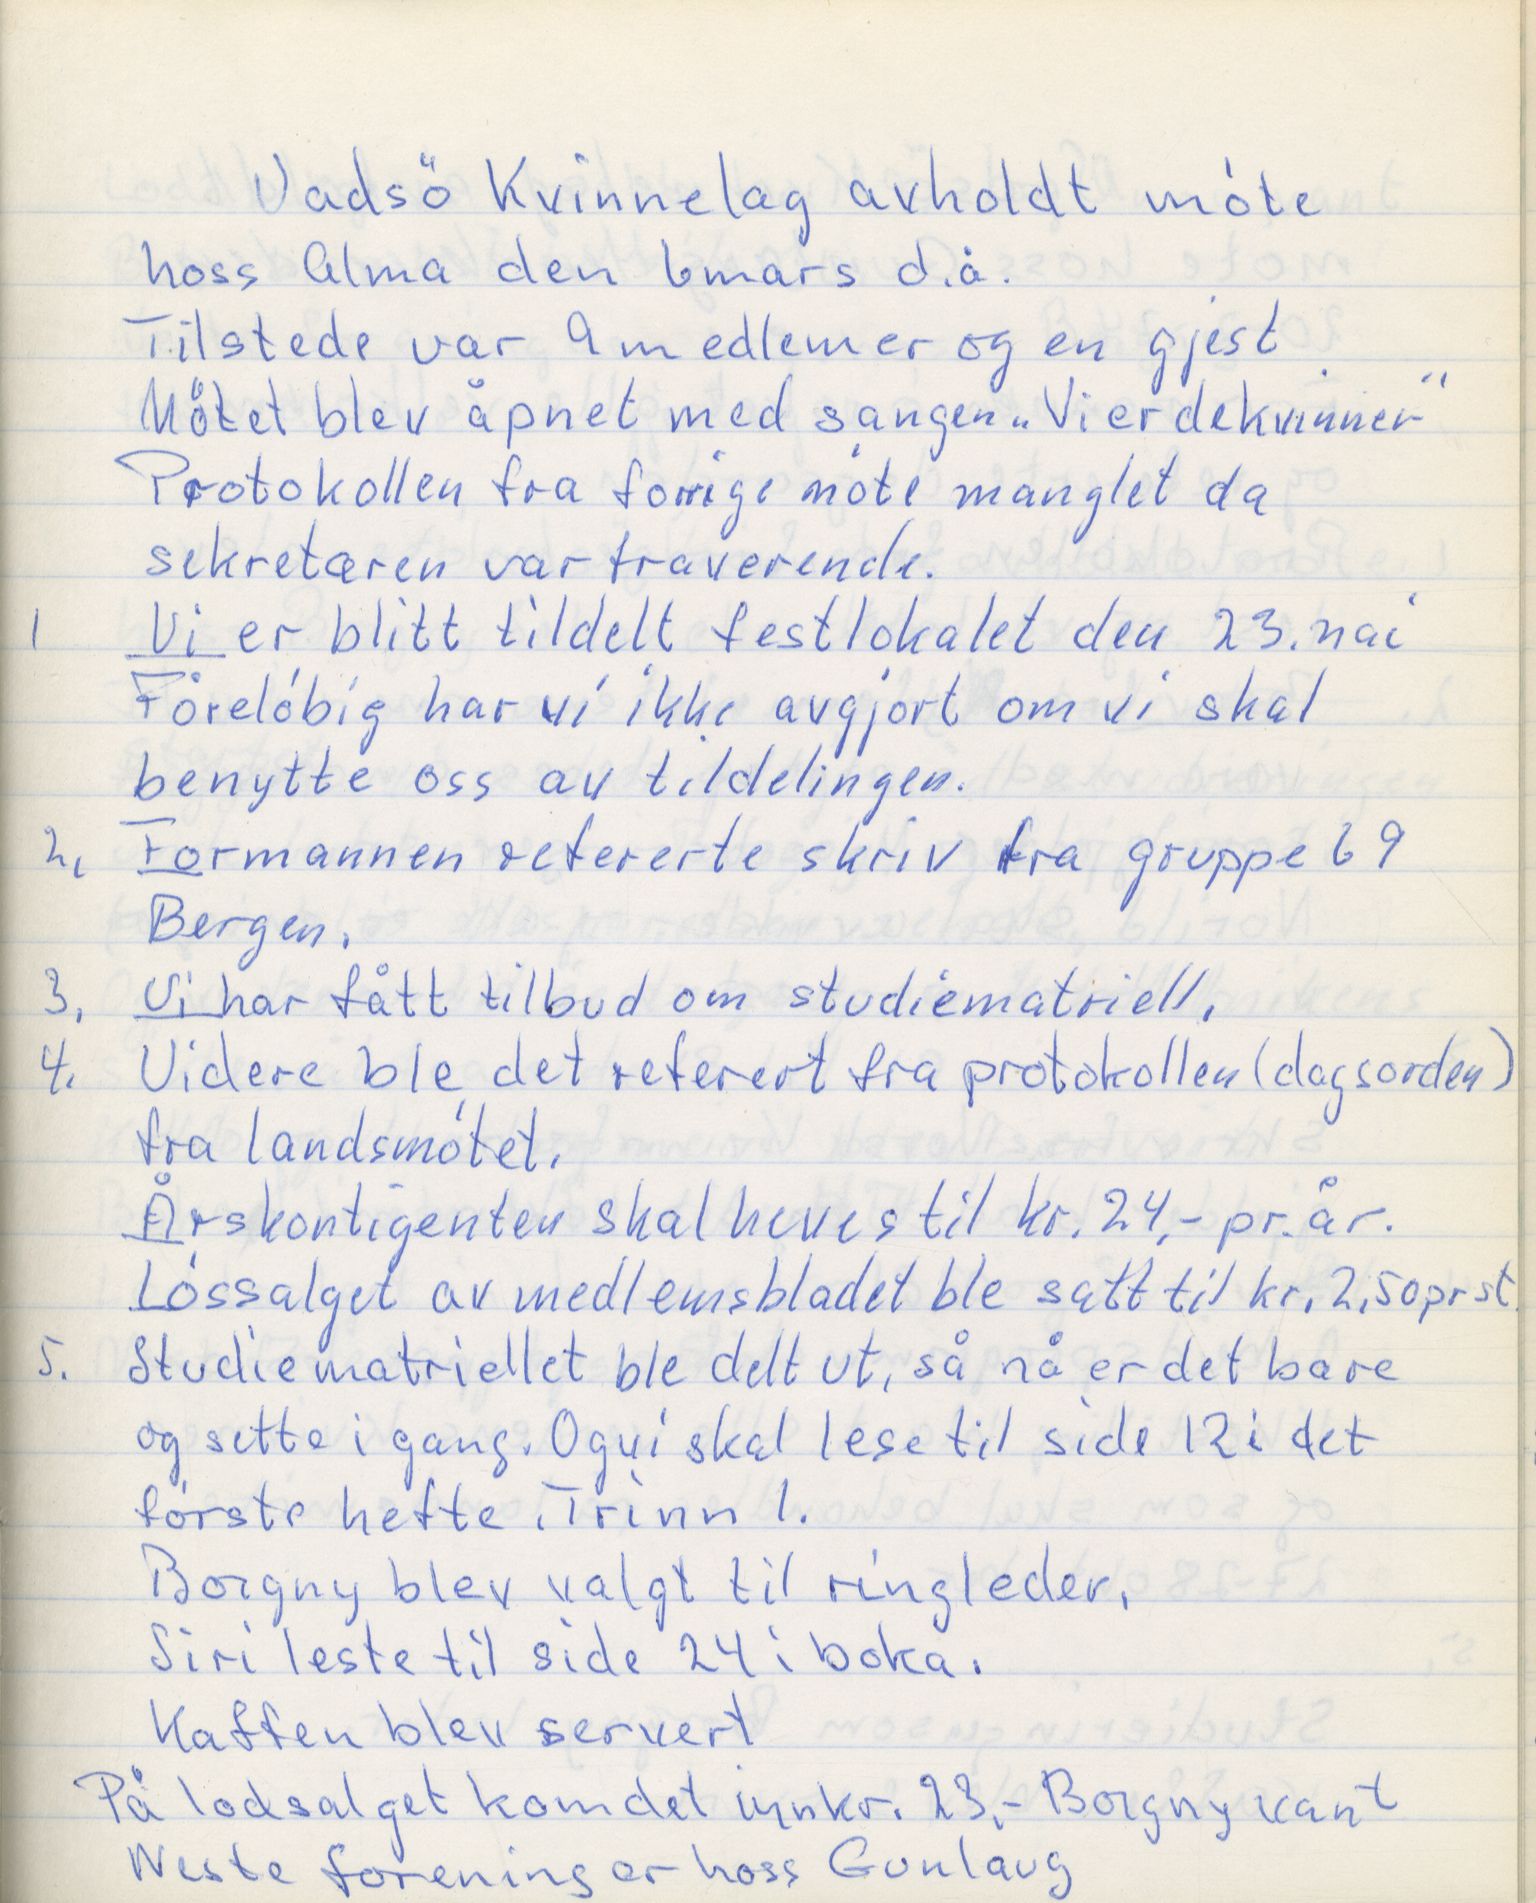 Vadsö Kvinnelag avholdt móte
hoss Alma den 6mars d.å.
Tilstede var 9 medlemer og en gjest.
Mötet blev åpnet med sangen „Vi er de kvinner"
Protokollen fra forrige móte manglet da
sekretæren var fraverende.
1 Vi er blitt tildelt festlokalet den 23. mai
Fórelóbig har vi ikke avgjort om vi skal
benytte oss av tildelingen.
2, Formannen refererte skriv fra gruppe 69
Bergen.
3, Vi har fått tilbud om studiematriell.
4. Videre ble det referert fra protokollen (dagsorden)
fra landsmótet.
Årskontigenten skal heves til kr. 24,- pr. år.
Lóssalget av medlemsbladet ble satt til kr. 2,50 pr st.
5. Studiematriellet ble delt ut, så nå er det bare
og sette i gang. Og vi skal lese til side 12 i det
fórste hefte. Trinn 1.
Borgny blev valgt til ringleder.
Siri leste til side 24 i boka.
Kaffen blev servert
På lodsalget kom det innkr. 23,- Borgny vant
Neste forening er hoss Gunlaug